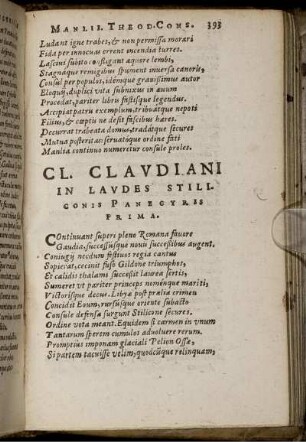 MANLII. THEOD. CONS. 393
Ludant igne trabes, & non permissa morari
Fida per innocuas errent incendia turres.
Lascivi subito confligant aequore lembi,
Stagnaque remigibus spument inversa canoris,
Consul per populos, idemque gravissimus autor
Eloquij, duplici vita subnixus in aevum
Procedat, pariter libris fastisque legendus.
Accipiat patris exemplum, tribuatque nepoti
Filius, & coeptis ne desit fascibus haeres.
Decurrat trabeata domus, tradatque secures
Mutua posteritas: servatoque ordine fati
Manlia continuo numeretur consule proles.
CL. CLAVDIANI
IN LAVDES STILI-
CONIS PANEGYRIS
PRIMA.
Continuant superi pleno Romana favore
Gaudia, successusque novis successibus augent,
Conubij necdum festivos regia cantus
Sopierat, cecinit fuso Gildone triumphos,
Et calidis thalami successit laurea sertis,
Sumeret ut pariter princeps nomenque mariti,
Victorisque decus. Libyae post praelia crimen
Concidit Eoum, rursusque oriente subacto
Consule defensae surgunt Stilicone secures.
Ordine vota meant. Equidem si carmen in unum
Tantarum sperem cumulos advolvere rerum.
Promptius imponam glaciali Pelion Ossae,
Si partem tacuisse velim, quodcūque relinquam,